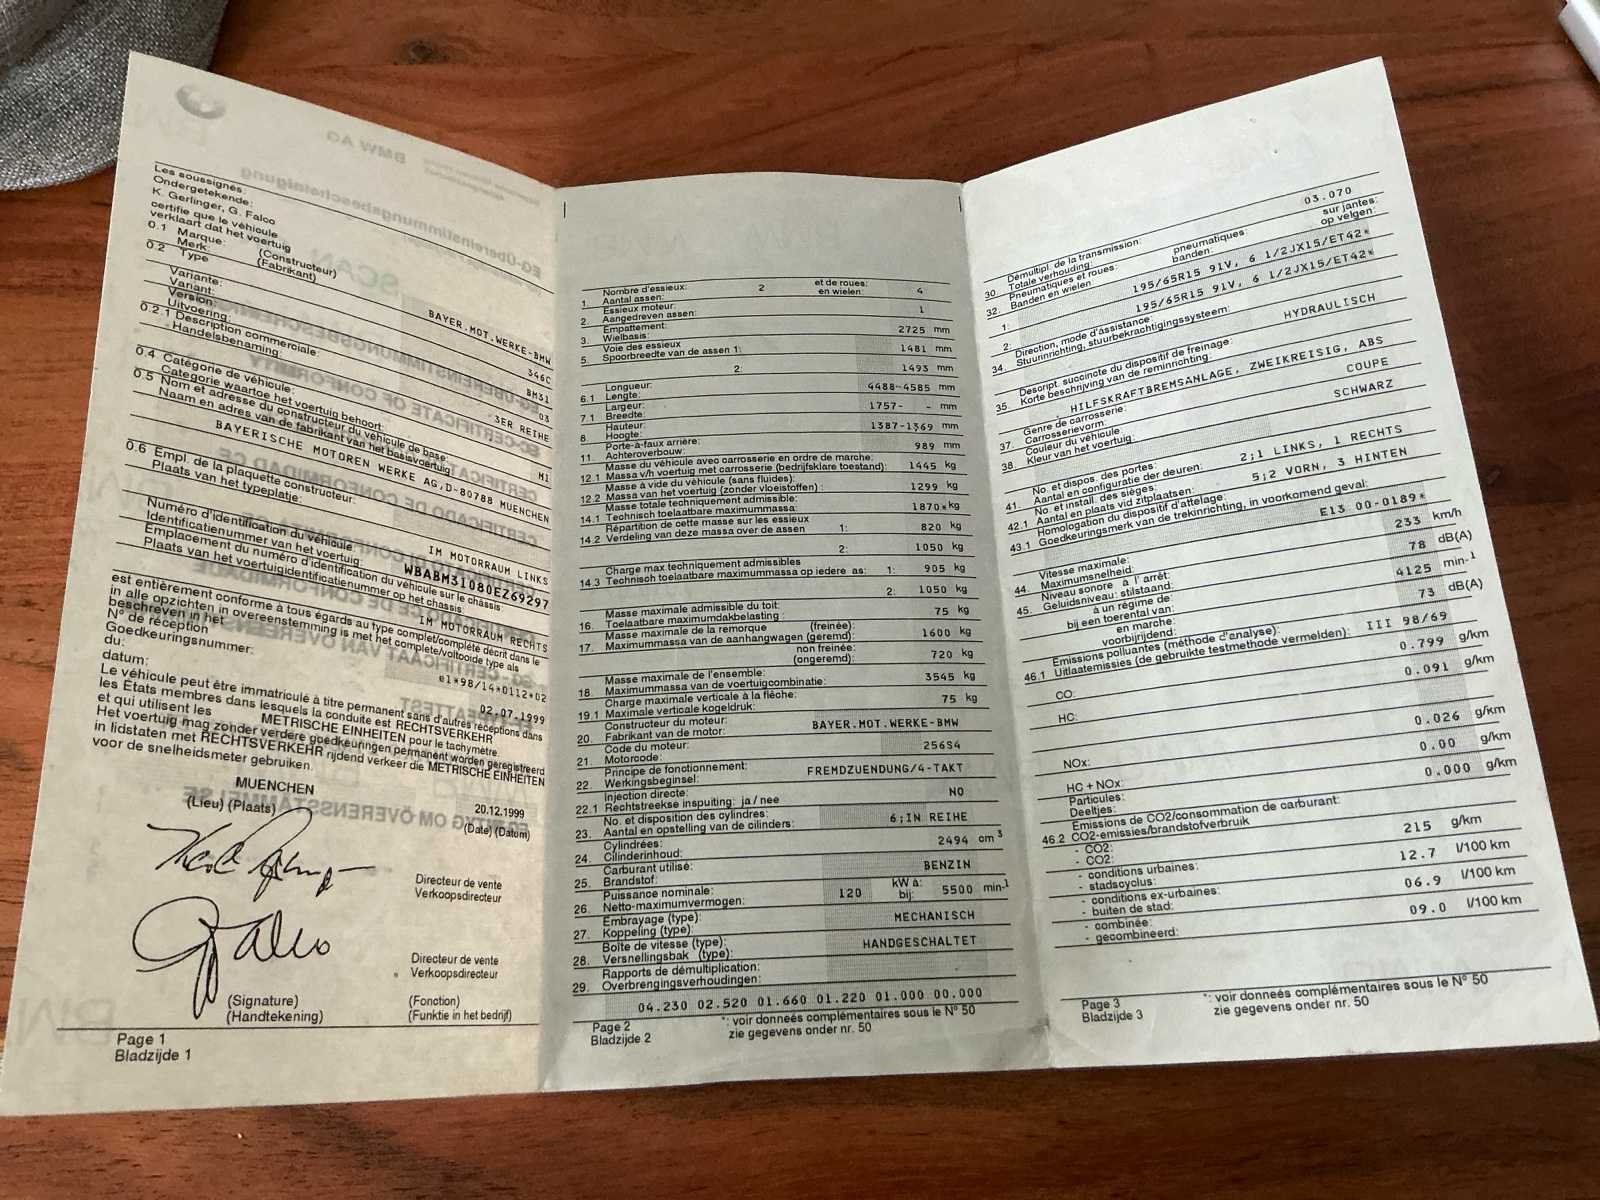 Les soussignés:
Ondergetekende:
K. Gerlinger, G. Falco
certifie que le véhicule
verklaart dat het voertuig
0.1 Marque: (Constructeur)
Merk: (Fabrikant)
BAYER.MOT.WERKE-BMW
0.2 Type
346C
Variante:
Variant:
BM31
Version:
Uitvoering:
03
0.2.1 Description commerciale:
Handelsbenaming:
3ER REIHE
0.4 Catégorie de véhicule:
Categorie waartoe het voertuig behoort:
M1
0.5 Nom et adresse du constructeur du véhicule de base:
Naam en adres van de fabrikant van het basisvoertuig:
BAYERISCHE MOTOREN WERKE AG,D-80788 MUENCHEN
0.6 Empl. de la plaquette constructeur:
Plaats van het typeplatje:
IM MOTORRAUM LINKS
Numéro d'identification du véhicule
Identificatienummer van het voertuig:
WBABM31080EZ69297
Emplacement du numéro d'identification du véhicule sur le châssis
Plaats van het voertuigidentificatienummer op het chassis:
IM MOTORRAUM RECHTS
est entièrement conforme à tous égards au type complet/complété décrit dans le
in alle opzichten in overeenstemming is met het complete/voltooide type als
beschreven in het
N° de réception
Goedkeuringsnummer:
e1*98/14*0112*02
du:
datum:
02.07.1999
Le véhicule peut être immatriculé à titre permanent sans d'autres réceptions dans
les États membres dans lesquels la conduite est RECHTSVERKEHR
et qui utilisent les METRISCHE EINHEITEN pour le tachymètre.
Het voertuig mag zonder verdere goedkeuringen permanent worden geregistreerd
in lidstaten met RECHTSVERKEHR rijdend verkeer die METRISCHE EINHEITEN
voor de snelheidsmeter gebruiken.
MUENCHEN 20.12.1999
(Lieu) (Plaats) (Date) (Datom)
Directeur de vente
Verkoopsdirecteur
Directeur de vente
Verkoopsdirecteur
(Signature) (Fonction)
(Handtekening) (Funktie in het bedrijf)
Page 1
Bladzijde 1
1. Nombre d'essieux: 2 et de roues: 4
Aantal assen: en wielen:
2. Essieux moteur: 1
Aangedreven assen:
3. Empattement: 2725 mm
Wielbasis:
5. Voie des essieux
Spoorbreedte van de assen 1: 1481 mm
2: 1493 mm
6.1 Longueur: 4488-4585 mm
Lengte:
7.1 Largeur: 1757- - mm
Breedte:
8. Hauteur: 1387-1369 mm
Hoogte:
11. Porte-à-faux arrière: 989 mm
Achteroverbouw:
12.1 Masse du véhicule avec carrosserie en ordre de marche: 1445 kg
Massa v/h voertuig met carrosserie (bedrijfsklare toestand):
12.2 Masse à vide du véhicule (sans fluides): 1299 kg
Massa van het voertuig (zonder vloeistoffen):
14.1 Masse totale techniquement admissible: 1870* kg
Technisch toelaatbare maximummassa:
14.2 Répartition de cette masse sur les essieux
Verdeling van deze massa over de assen 1: 820 kg
2: 1050 kg
14.3 Charge max techniquement admissibles
Technisch toelaatbare maximummassa op iedere as: 1: 905 kg
2: 1050 kg
16. Masse maximale admissible du toit: 75 kg
Toelaatbare maximumdakbelasting:
17. Masse maximale de la remorque (freinée): 1600 kg
Maximummassa van de aanhangwagen (geremd):
non freinée: 720 kg
(ongeremd):
18. Masse maximale de l'ensemble: 3545 kg
Maximummassa van de voertuigcombinatie:
19.1 Charge maximale verticale à la flèche: 75 kg
Maximale verticale kogeldruk:
20. Constructeur du moteur: BAYER.MOT.WERKE-BMW
Fabrikant van de motor:
21. Code du moteur: 256S4
Motorcode:
22. Principe de fonctionnement: FREMDZUENDUNG/4-TAKT
Werkingsbeginsel:
22.1 Injection directe: NO
Rechtstreekse inspuiting: ja / nee
23. No. et disposition des cylindres: 6;IN REIHE
Aantal en opstelling van de cilinders:
24. Cylindrées: 2494 cm³
Cilinderinhoud:
25. Carburant utilisé: BENZIN
Brandstof:
26. Puissance nominale: 120 kW à: 5500 min-1
Netto-maximumvermogen: bij:
27. Embrayage (type): MECHANISCH
Koppeling (type):
28. Boîte de vitesse (type): HANDGESCHALTET
Versnellingsbak (type):
29. Rapports de démultiplication:
Overbrengingsverhoudingen:
04.230 02.520 01.660 01.220 01.000 00.000
Page 2
Bladzijde 2
*: voir donneés complémentaires sous le N° 50
zie gegevens onder nr. 50
30. Démultipl. de la transmission: 03.070
Totale verhouding
32. Pneumatiques et roues: pneumatiques: sur jantes:
Banden en wielen banden: op velgen:
1: 195/65R15 91V, 6 1/2JX15/ET42*
2: 195/65R15 91V, 6 1/2JX15/ET42*
34. Direction, mode d'assistance:
Stuurinrichting, stuurbekrachtigingssysteem:
HYDRAULISCH
35. Descript. succincte du dispositif de freinage:
Korte beschrijving van de reminrichting:
HILFSKRAFTBREMSANLAGE, ZWEIKREISIG, ABS
37. Genre de carrosserie: COUPE
Carrosserievorm:
38. Couleur du véhicule: SCHWARZ
Kleur van het voertuig:
41. No. et dispos. des portes: 2;1 LINKS, 1 RECHTS
Aantal en configuratie der deuren:
42.1 No. et install. des sièges: 5;2 VORN, 3 HINTEN
Aantal en plaats vid zitplaatsen:
43.1 Homologation du dispositif d'attelage:
Goedkeuringsmerk van de trekinrichting, in voorkomend geval:
E13 00-0189*
44. Vitesse maximale: 233 km/h
Maximumsnelheid:
45. Niveau sonore à l'arrêt: 78 dB(A)
Geluidsniveau: stilstaand:
à un régime de: 4125 min-1
bij een toerental van:
en marche: 73 dB(A)
voorbijrijdend:
46.1 Emissions polluantes (méthode d'analyse):
Uitlaatemissies (de gebruikte testmethode vermelden): III 98/69
CO: 0.799 g/km
HC: 0.091 g/km
NOx: 0.026 g/km
HC + NOx: 0.00 g/km
Particules: 0.000 g/km
Deeltjes:
46.2 Emissions de CO2/consommation de carburant:
CO2-emissies/brandstofverbruik
- CO2: 215 g/km
- CO2:
- conditions urbaines: 12.7 l/100 km
- stadscyclus:
- conditions ex-urbaines: 06.9 l/100 km
- buiten de stad:
- combinée: 09.0 l/100 km
- gecombineerd:
Page 3
Bladzijde 3
*: voir donneés complémentaires sous le N° 50
zie gegevens onder nr. 50